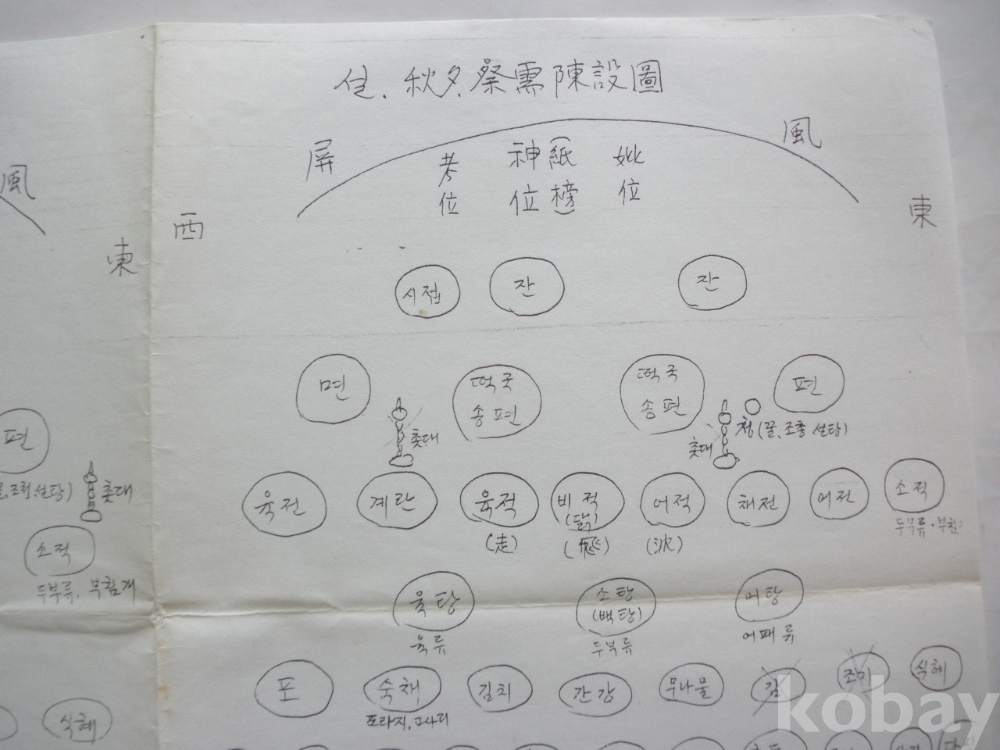 설. 秋夕. 祭需陳設圖
屛 風
考位 神位 (紙榜) 妣位
西 東
시접 잔 잔
면 떡국 송편 떡국 송편 편
촛대 촛대 청(꿀, 조청 설탕)
육전 계란 육적 비적 (닭) 어적 채전 어전 소적
(走) (飛) 두부류·부침
육탕 소탕 (백탕) 어탕
육류 두부류 어패류
포 숙채 김치 간장 무나물 김 조기 식혜
도라지, 고사리
風
東
편
설탕) 촛대
소적
두부류, 부침개
식혜
kobay